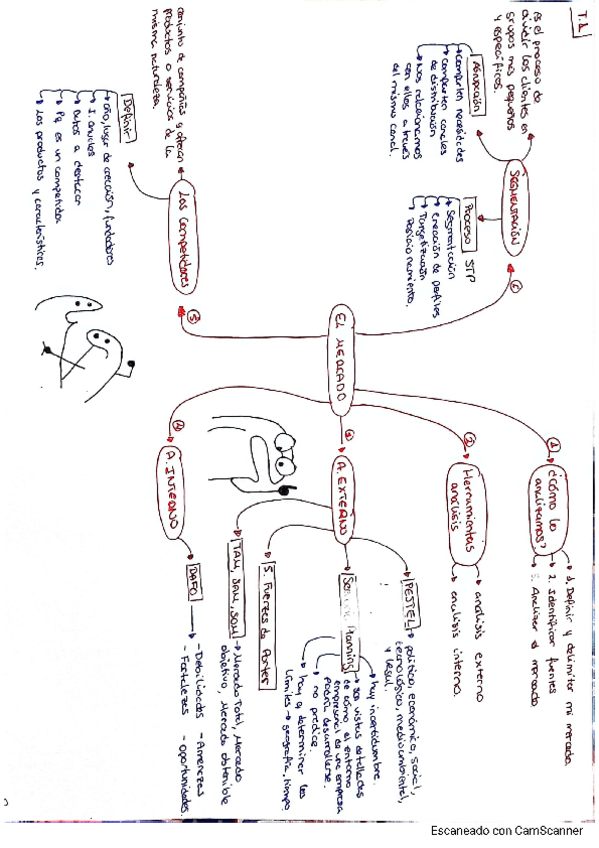 T.1
EL MERCADO
①
¿Cómo lo
analizamos?
1. Definir y delimitar mi mercado.
2. Identificar fuentes
3. Analizar el mercado
②
Herramientas
análisis
análisis externo
análisis interno.
③
A. EXTERNO
PESTEL
político, económico, social,
tecnológico, medioambiental,
y legal.
Planning
hay incertidumbre.
son vistas detalladas
de cómo el entorno
empresarial de una empresa
podría desarrollarse.
no predice.
hay q determinar los
límites → geografía, tiempo
5. Fuerzas de Porter
TAM, SAM, SOM
Mercado Total, Mercado
objetivo, Mercado obtenible
A. INTERNO
DAFO
- Debilidades - Amenazas
- Fortalezas - oportunidades.
⑤
Los Competidores
conjunto de compañías q ofrecen
productos o servicios de la
misma naturaleza.
Definir
año, lugar de creación, fundadores
I. anuales
datos a destacar
Pq es un competidor
Los productos y características.
SEGMENTACIÓN
es el proceso de
dividir los clientes en
grupos más pequeños
y específicos.
Agrupación
comparten necesidades
comparten canales
de distribución
nos relacionamos
con ellos a través
del mismo canal.
Proceso STP
Segmentación
creación de perfiles
Targetización
Posicionamiento.
Escaneado con CamScanner